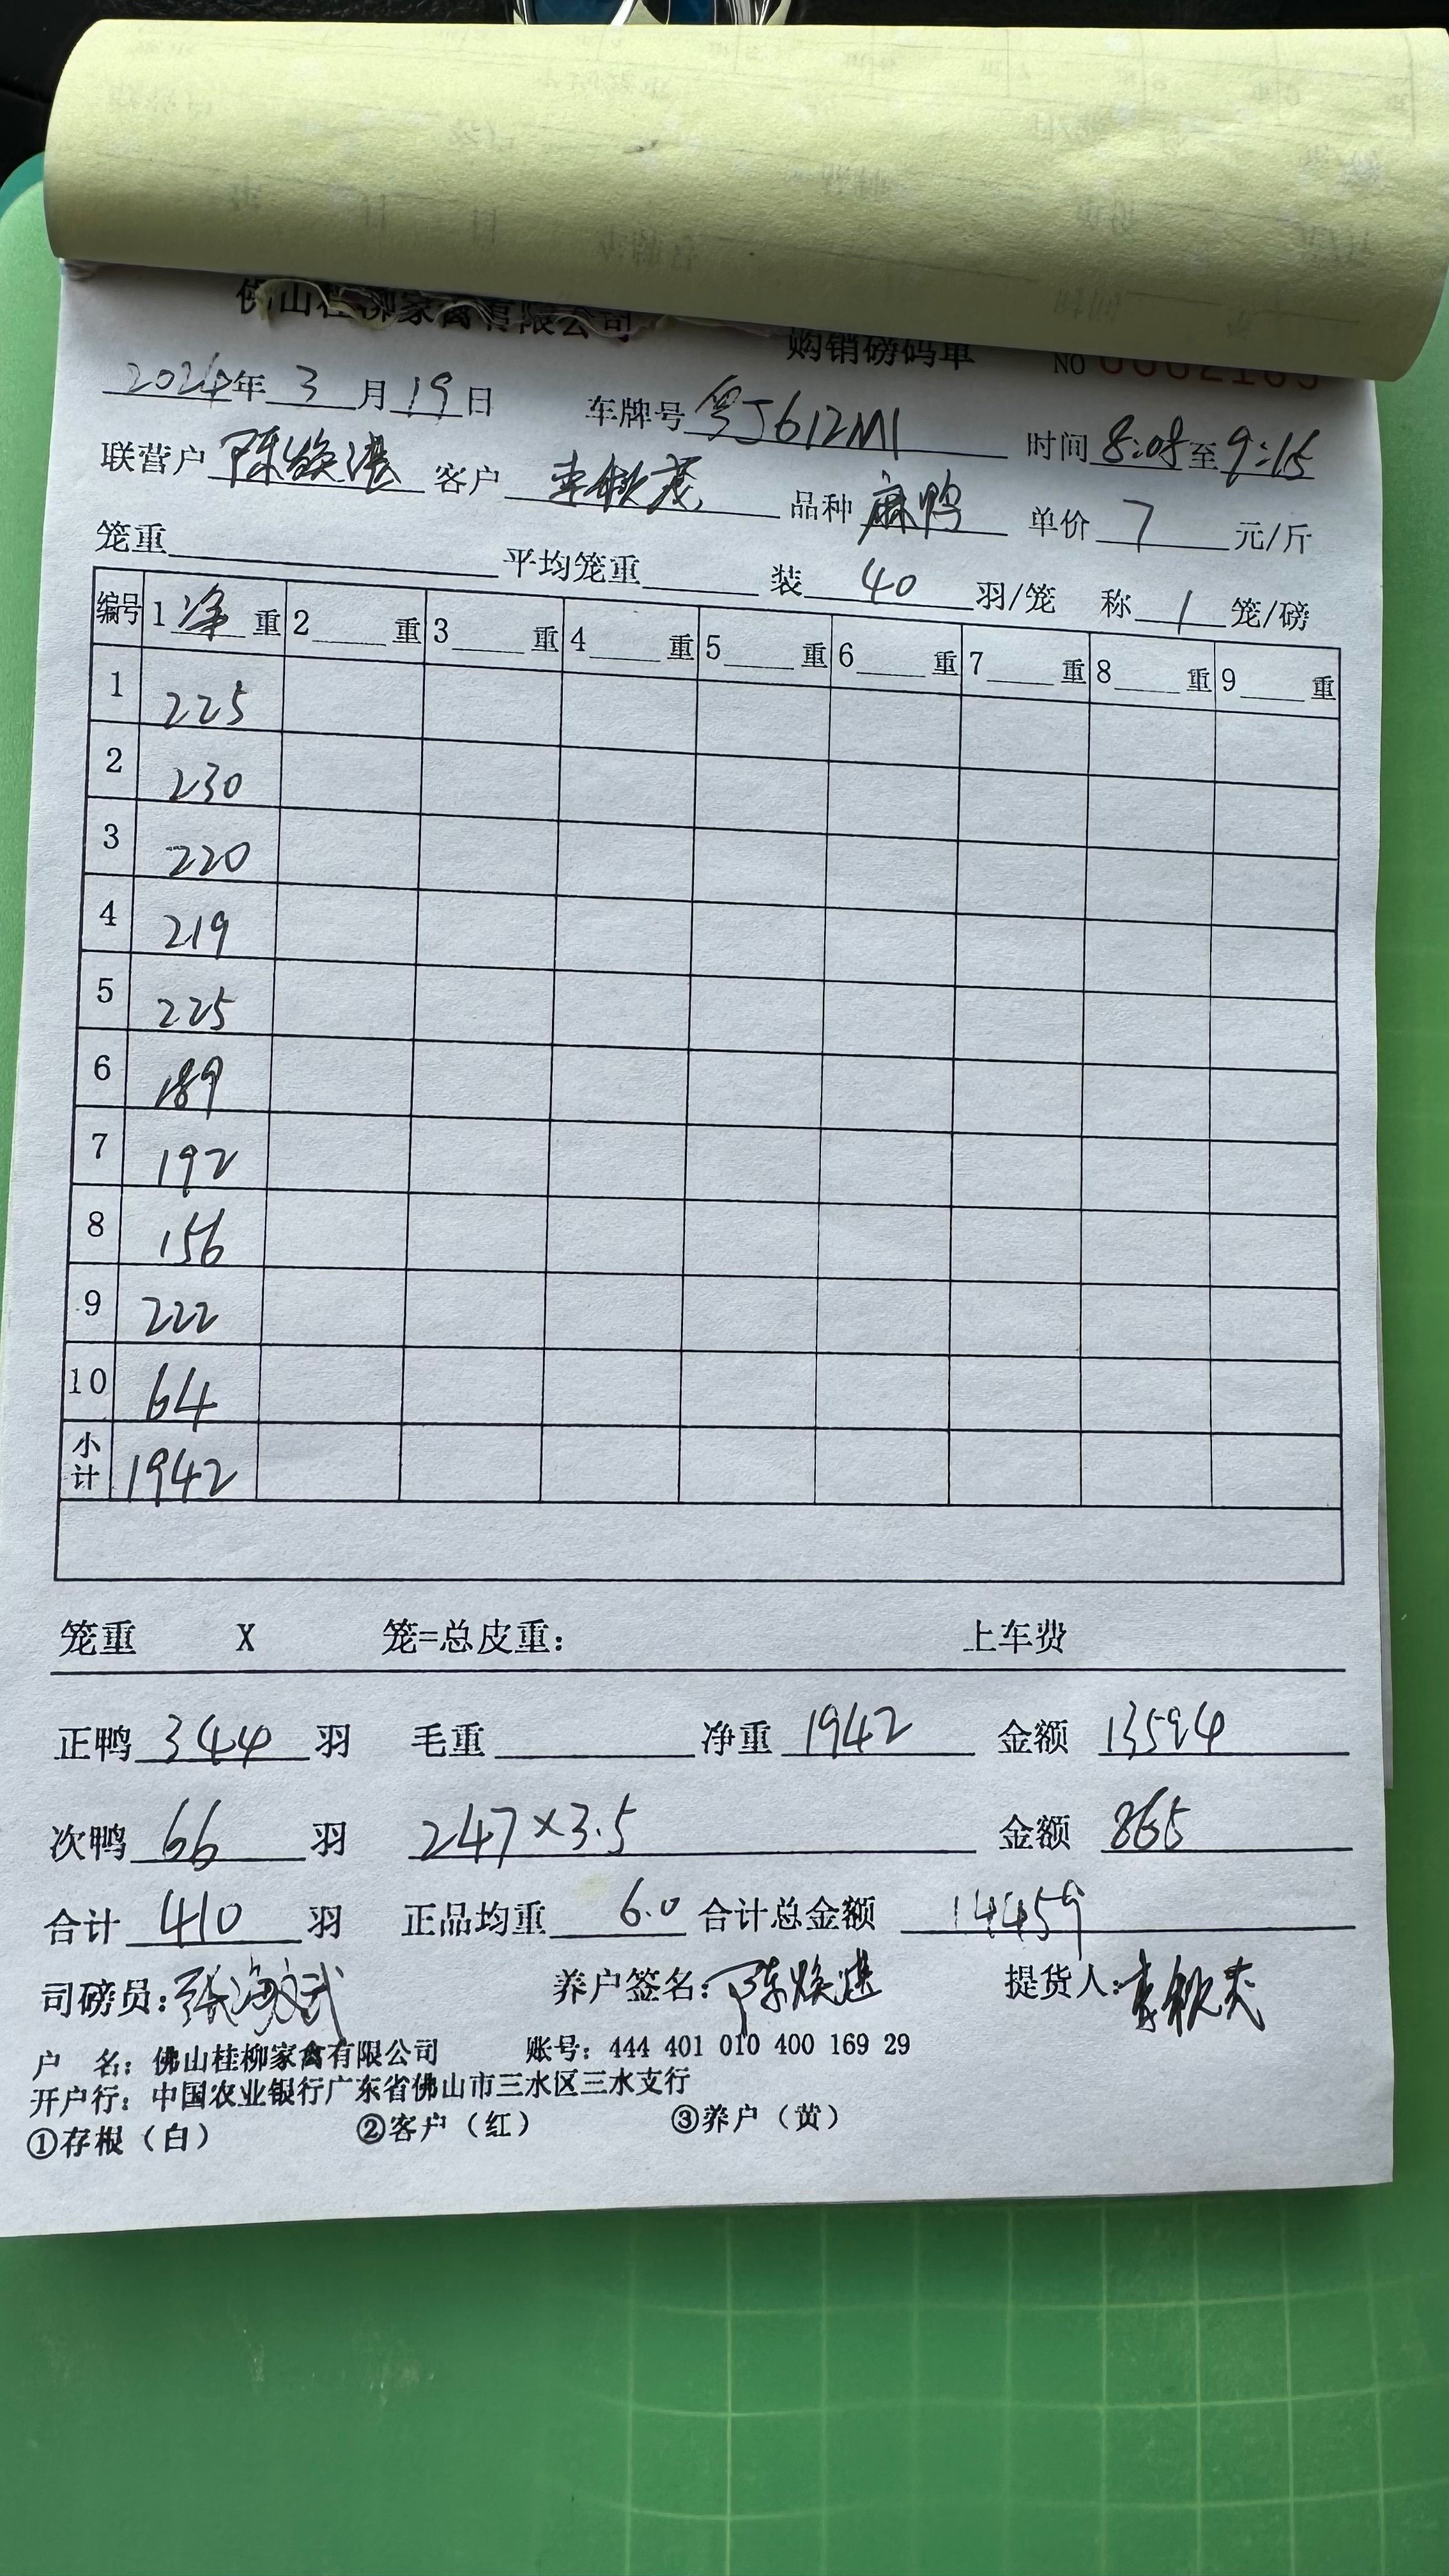 佛山桂柳家禽有限公司 购销磅码单 NO
2024年 3 月 19 日 车牌号 粤J612M1 时间 8:08 至 9:15
联营户 陈焕港 客户 李钦茂 品种 麻鸭 单价 7 元/斤
笼重 平均笼重 装 40 羽/笼 称 1 笼/磅
编号 1 净 重 2 重 3 重 4 重 5 重 6 重 7 重 8 重 9 重
1 225
2 230
3 220
4 219
5 225
6 189
7 192
8 156
9 222
10 64
小计 1942
笼重 X 笼=总皮重： 上车费
正鸭 344 羽 毛重 净重 1942 金额 13594
次鸭 66 羽 247×3.5 金额 865
合计 410 羽 正品均重 6.0 合计总金额 14459
司磅员：张海武 养户签名：陈焕 提货人：李钦
户 名：佛山桂柳家禽有限公司 账号：444 401 010 400 169 29
开户行：中国农业银行广东省佛山市三水区三水支行
①存根（白） ②客户（红） ③养户（黄）